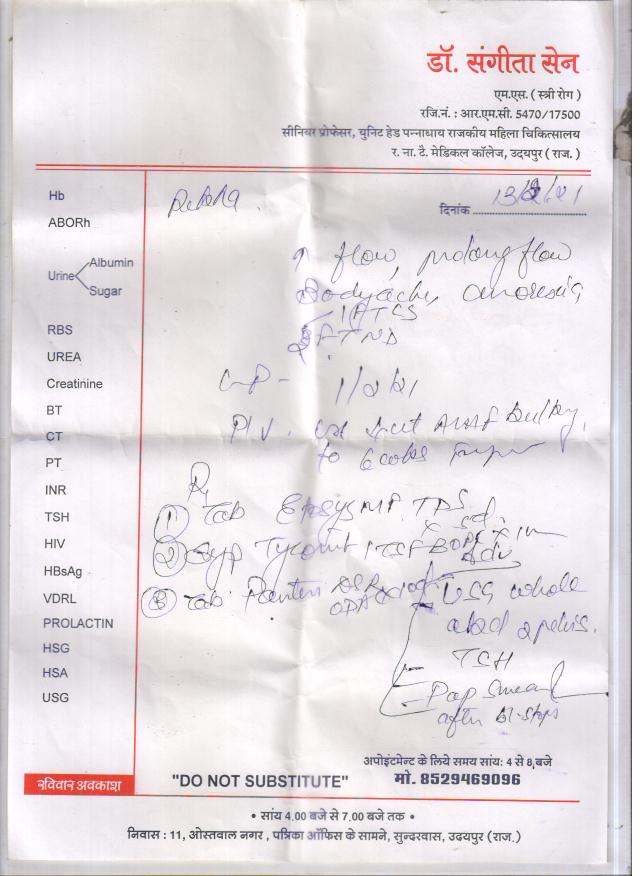 डॉ. संगीता सेन
एम.एस. ( स्त्री रोग )
रजि.नं. : आर.एम.सी. 5470/17500
सीनियर प्रोफेसर, युनिट हेड पन्नाधाय राजकीय महिला चिकित्सालय
र. ना. टै. मेडिकल कॉलेज, उदयपुर ( राज. )
दिनांक
Hb
ABORh
Urine Albumin
Sugar
RBS
UREA
Creatinine
BT
CT
PT
INR
TSH
HIV
HBsAg
VDRL
PROLACTIN
HSG
HSA
USG
↑ flow, prolong flow
Bodyache, anorexia
FTND
LMP - 1/2/21
bulky
to 6 weeks
Rx
① Tab TDS
② Syp
Adv
③ Tab DSR
USG whole
abd & pelvis.
TSH
Pap Smear
after Bl. stops
अपोइंटमेन्ट के लिये समय सांय: 4 से 8 बजे
रविवार अवकाश "DO NOT SUBSTITUTE" मो. 8529469096
• सांय 4.00 बजे से 7.00 बजे तक •
निवास : 11, ओस्तवाल नगर , पत्रिका ऑफिस के सामने, सुन्दरवास, उदयपुर (राज.)